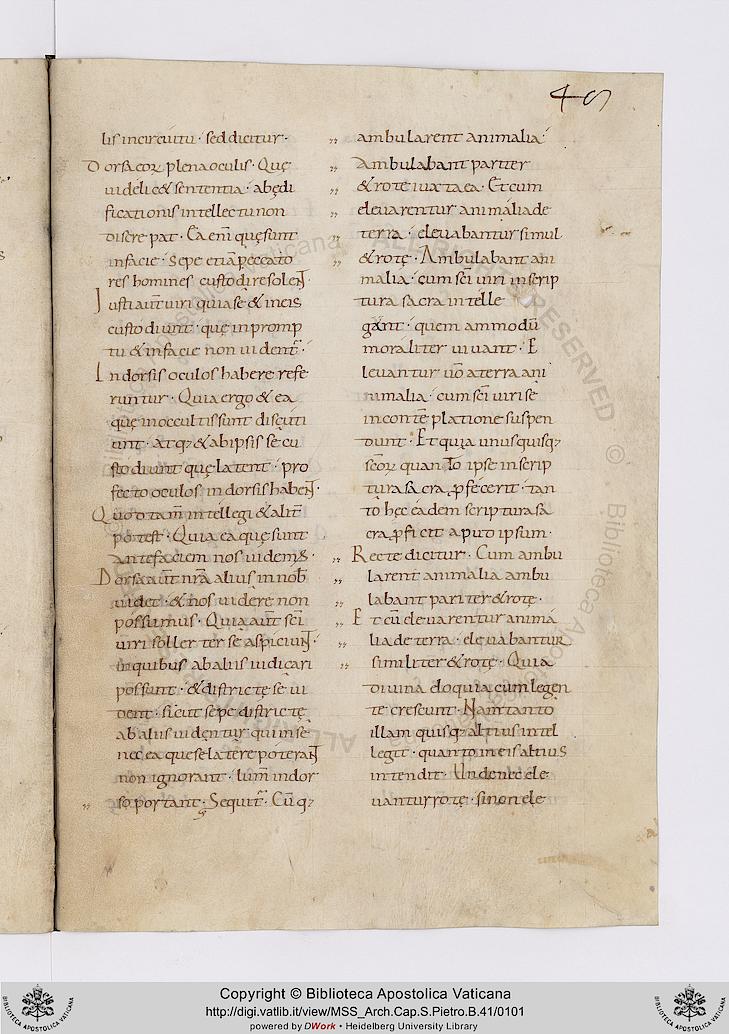 49
lis in circuitu · sed dicitur ·
Dorsa eoꝝ plena oculis · Quę
uideli c& sententia · ab ędi
ficationis intellectu non
discrepat · Ea em̄ quę sunt
in facie · Sepe etiā peccato
res homines custodire solen̄t ·
Iusti aut̄ uiri quia se & in eis
custodiunt · quę in promp
tu & in facie non uident̄ ·
In dorsis oculos habere refe
runtur · Quia ergo & ea
quę in occultis sunt discuti
unt · atqꝫ & ab ipsis se cu
stodiunt quę latent · pro
fecto oculos in dorsis haben̄t ·
Quod tam̄ intellegi & alit̄
potest · Quia ea quę sunt
ante faciem nos uidem᷒ ·
Dorsa aut̄ nr̄a alius in nob̄
uidet · & nos uidere non
possumus · Quia aut̄ sc̄i
uiri sollerter se aspiciun̄t ·
in quibus ab aliis iudicari
possunt · & districtę se ui
dent · sicut sepe districtę
ab aliis uidentur qui in se
nec ea que se latere poteran̄t
non ignorant · lum̄ in dor
so portant · Sequit̄ · Cū qꝫ
ambularent animalia ·
Ambulabant pariter
& rote iuxta ea · Et cum
eleuarentur animalia de
terra · eleuabantur simul
& rotę · Ambulabant ani
malia · cum sc̄i uiri in scrip
tura sacra intelle
gant · quem ammodū
moraliter uiuant · E
leuantur ūo a terra ani
malia · cum sc̄i uiri se
in contēplatione suspen
dunt · Et quia unusquisqꝫ
sc̄oꝝ quanto ipse in scrip
tura sacra ꝓfecerit · tan
to hęc eadem scriptura sa
cra ꝓficit aput ipsum ·
Recte dicitur · Cum ambu
larent animalia ambu
labant pariter & rotę ·
Et cū eleuarentur anima
lia de terra · eleuabantur
similiter & rotę · Quia
diuina eloquia cum legen
te crescunt · Nam tanto
illam quisqꝫ altius intel
legit · quanto in eis altius
intendit · Unde nec ele
uantur rotę · si non ele
Copyright © Biblioteca Apostolica Vaticana
http://digi.vatlib.it/view/MSS_Arch.Cap.S.Pietro.B.41/0101
powered by DWork • Heidelberg University Library